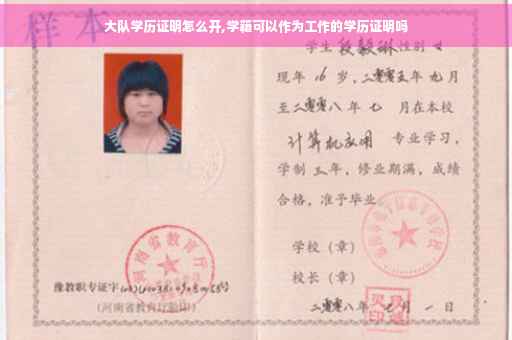 样本
大队学历证明怎么开,学籍可以作为工作的学历证明吗
学生段毅琳性别女
现年16岁，二零零五年九月
至二零零八年七月在本校
计算机应用 专业学习，
学制三年，修业期满，成绩
合格，准予毕业。
学校（章）
校长（章）
二零零八年七月一日
河南省教育厅
豫教职专证字
（河南省教育厅验印）